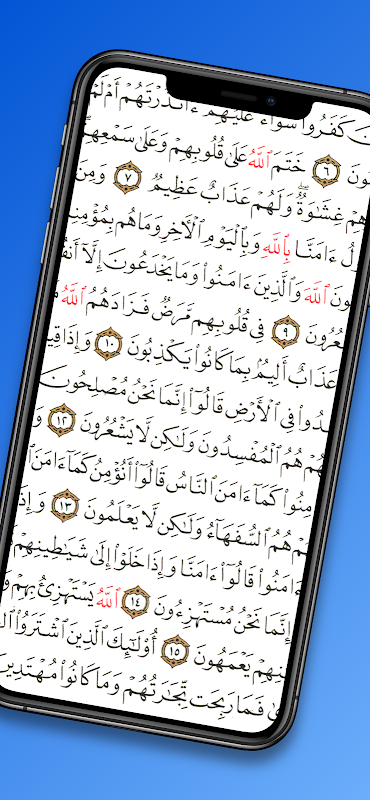 كَفَرُوا۟ سَوَآءٌ عَلَيْهِمْ ءَأَنذَرْتَهُمْ أَمْ لَمْ
ونَ ٦ خَتَمَ ٱللَّهُ عَلَىٰ قُلُوبِهِمْ وَعَلَىٰ سَمْعِهِمْ
هِمْ غِشَـٰوَةٌۭ وَلَهُمْ عَذَابٌ عَظِيمٌۭ ٧ وَمِنَ
ولُ ءَامَنَّا بِٱللَّهِ وَبِٱلْيَوْمِ ٱلْـَٔاخِرِ وَمَا هُم بِمُؤْمِنِينَ
ونَ ٱللَّهَ وَٱلَّذِينَ ءَامَنُوا۟ وَمَا يَخْدَعُونَ إِلَّآ أَنفُ
عُرُونَ ٩ فِى قُلُوبِهِم مَّرَضٌۭ فَزَادَهُمُ ٱللَّهُ
عَذَابٌ أَلِيمٌۢ بِمَا كَانُوا۟ يَكْذِبُونَ ١٠ وَإِذَا قِي
سِدُوا۟ فِى ٱلْأَرْضِ قَالُوٓا۟ إِنَّمَا نَحْنُ مُصْلِحُونَ
هُمْ هُمُ ٱلْمُفْسِدُونَ وَلَـٰكِن لَّا يَشْعُرُونَ ١٢ وَ
مِنُوا۟ كَمَآ ءَامَنَ ٱلنَّاسُ قَالُوٓا۟ أَنُؤْمِنُ كَمَآ ءَامَنَ
هُمْ هُمُ ٱلسُّفَهَآءُ وَلَـٰكِن لَّا يَعْلَمُونَ ١٣ وَإِذَ
ءَامَنُوا۟ قَالُوٓا۟ ءَامَنَّا وَإِذَا خَلَوْا۟ إِلَىٰ شَيَـٰطِينِهِمْ
إِنَّمَا نَحْنُ مُسْتَهْزِءُونَ ١٤ ٱللَّهُ يَسْتَهْزِئُ بِهِمْ وَ
نِهِمْ يَعْمَهُونَ ١٥ أُو۟لَـٰٓئِكَ ٱلَّذِينَ ٱشْتَرَوُا۟
فَمَا رَبِحَت تِّجَـٰرَتُهُمْ وَمَا كَانُوا۟ مُهْتَدِينَ